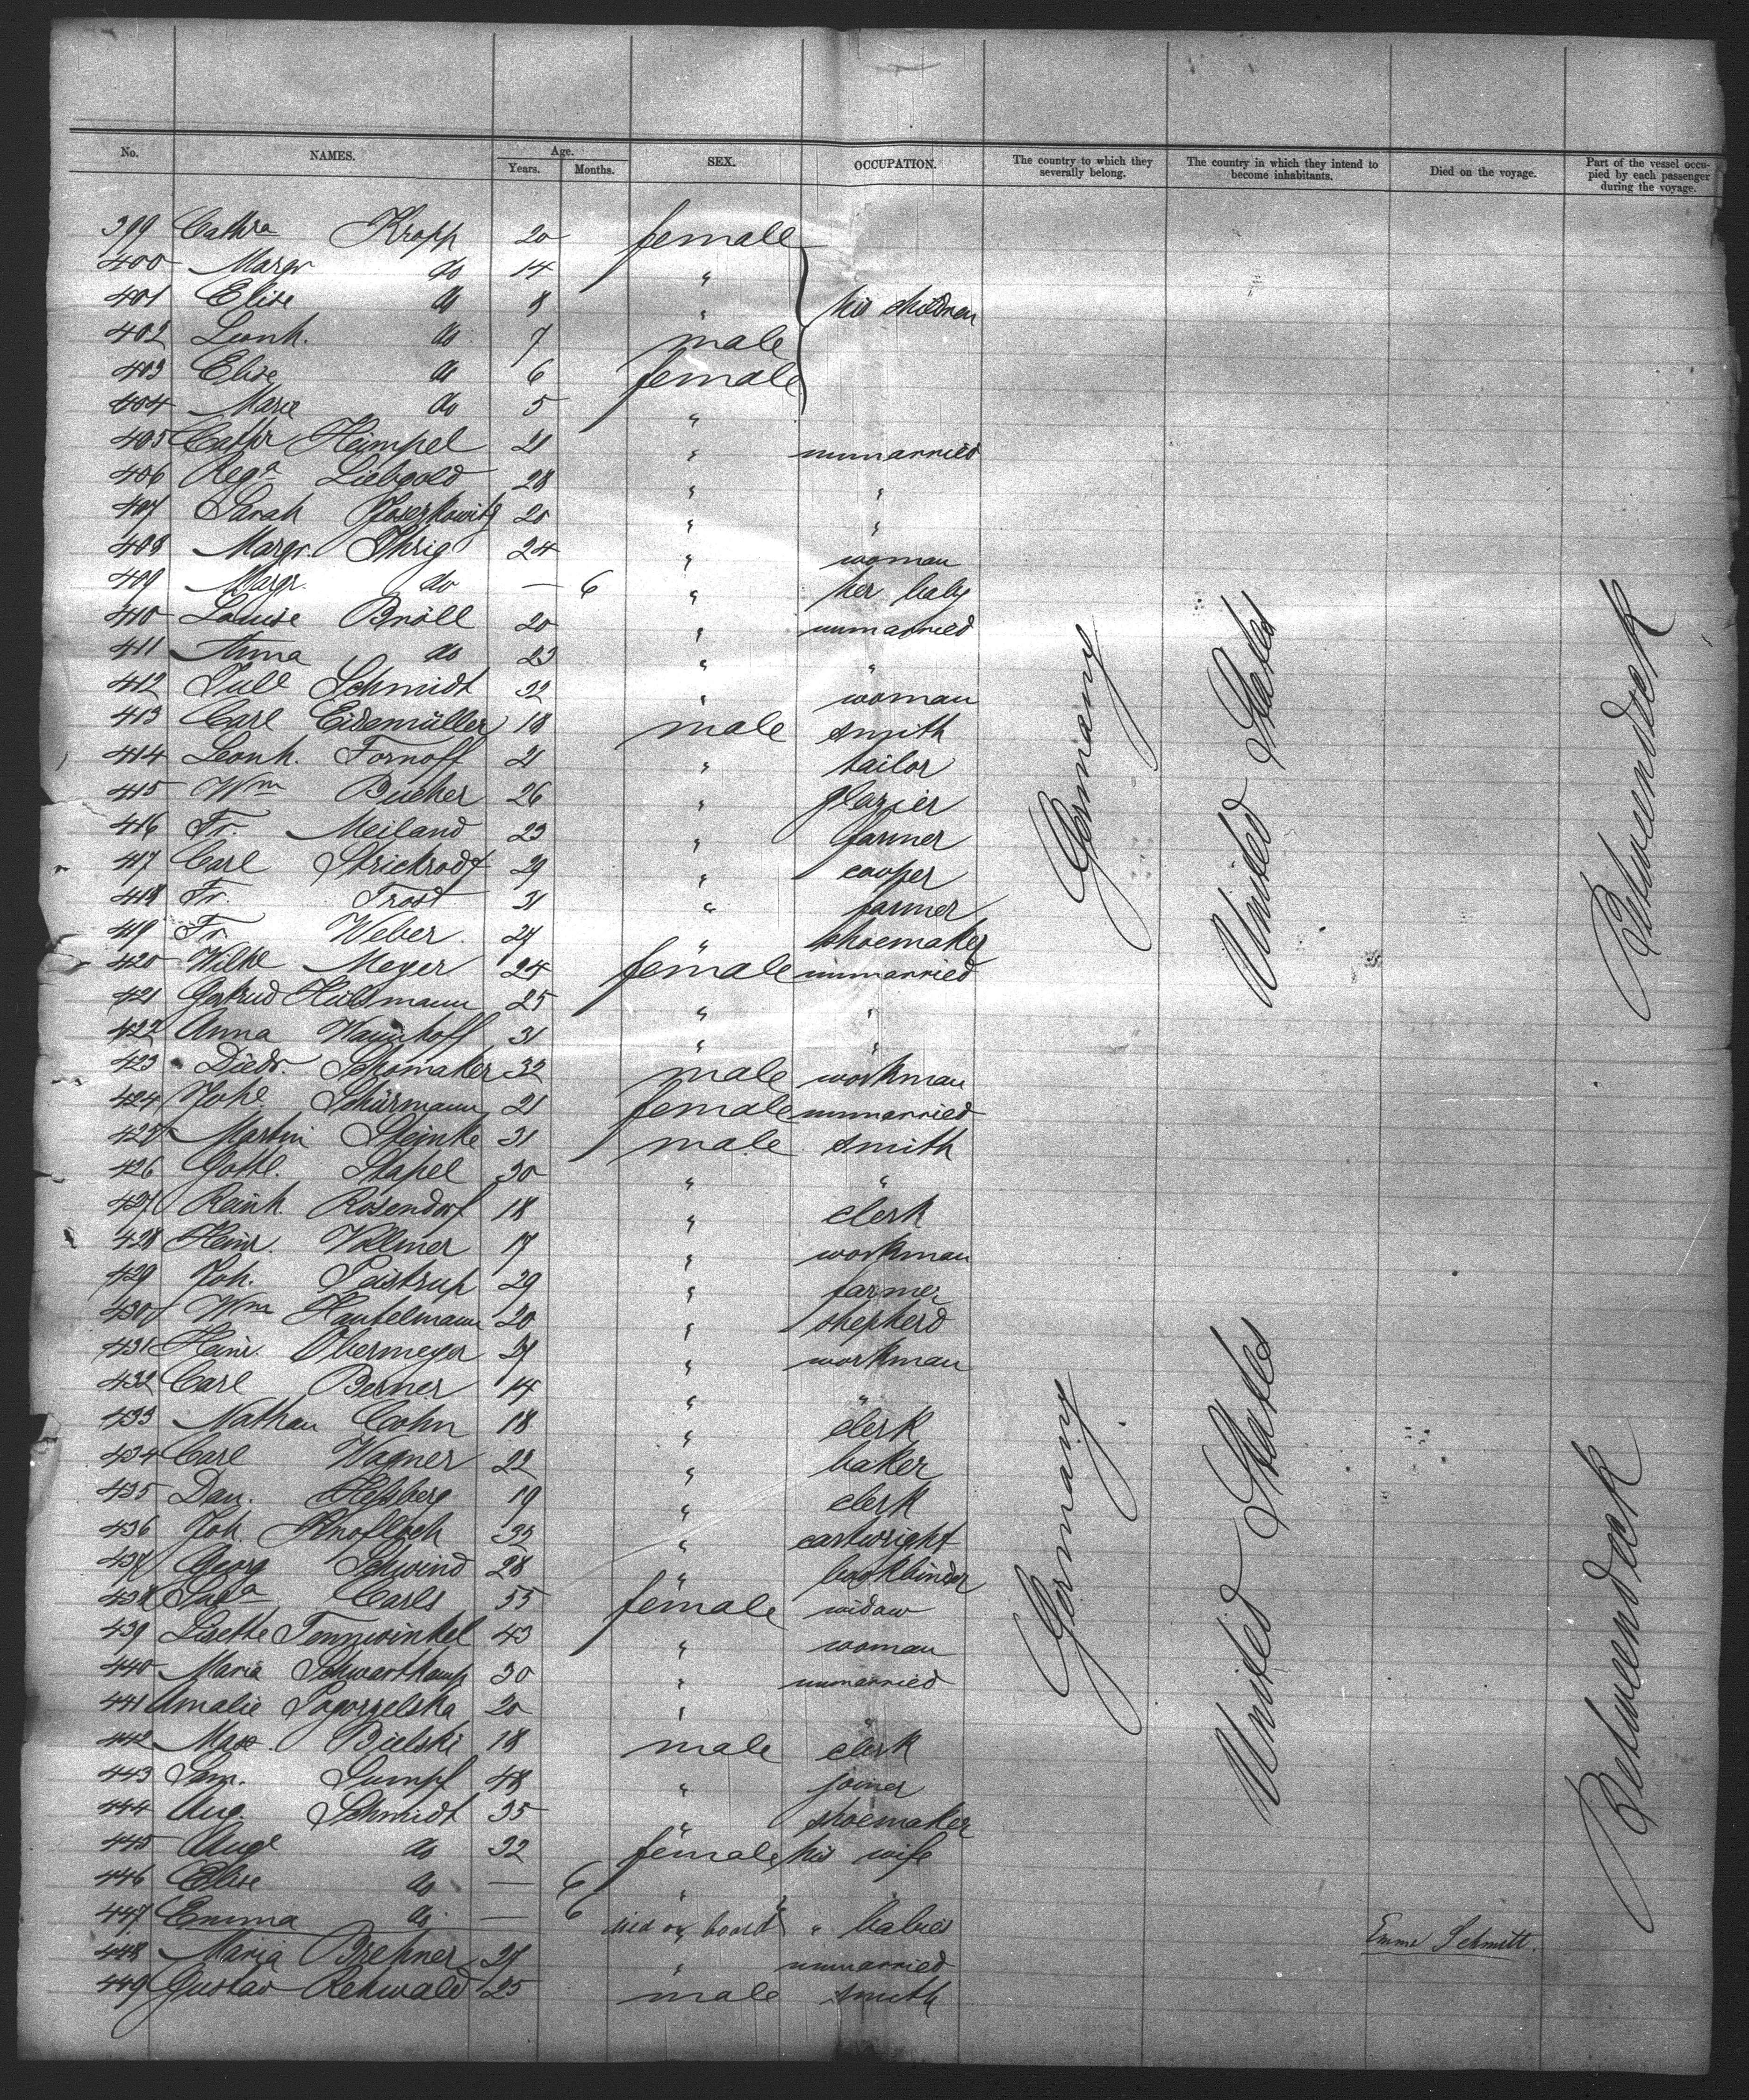 No. NAMES. Age. Years. Months. SEX. OCCUPATION. The country to which they severally belong. The country in which they intend to become inhabitants. Died on the voyage. Part of the vessel occupied by each passenger during the voyage.
399 Cathra Kropp 20 female
400 Margr do 14 "
401 Elise do 8 " his children
402 Leonh. do 7 male
403 Elise do 6 female
404 Marie do 5 "
405 Cathr Heimpel 21 " unmarried
406 Rega Liebgold 28 " "
407 Sarah 20 " "
408 Margr. Ihrig 24 " woman
409 Margr. do — 6 " her baby
410 Louise Bröll 20 " unmarried
411 Anna do 23 " "
412 Schmidt 32 " woman
413 Carl Eidemüller 18 male smith
414 Leonh. Fornoff 21 " tailor
415 Wm Bucher 26 " glazier
416 Fr. Meiland 23 " farmer
417 Carl Strickrodt 29 " cooper
418 Fr. Trost 31 " farmer
419 Fr. Weber 27 " shoemaker
420 Wilhe Meyer 24 female unmarried
421 Gertrud Hülsmann 25 " "
422 Anna 31 " "
423 Diedr. Schomaker 32 male workman
424 Johe Schürmann 21 female unmarried
425 Martin Steinke 31 male smith
426 Gottl. Stapel 30 " "
427 Reinh. Rosendorf 18 " clerk
428 Heinr. Vollmer 17 " workman
429 Joh. Peistrup 29 " farmer
430 Wm Hantelmann 20 " shepherd
431 Heinr. Obermeyer 27 " workman
432 Carl Berner 14 " "
433 Nathan Cohn 18 " clerk
434 Carl Wagner 22 " baker
435 Dan. 19 " clerk
436 Joh. Knofloch 32 " cartwright
437 Georg Schwind 28 " bookbinder
438 Carls 55 female widow
439 Lisette Tennwinkel 43 " woman
440 Maria Schwarthamp 30 " unmarried
441 Amalie Pogorzelska 20 " "
442 Max Bielski 18 male clerk
443 Sam. Sumpf 48 " joiner
444 Aug. Schmidt 35 " shoemaker
445 Auge do 32 female his wife
446 Elise do — 6 " "
447 Emma do — 6 died on board " babies Emma Schmitt.
448 Maria Brehner 27 " unmarried
449 Gustav Rehwald 25 male smith
Germany United States Betweendeck
Germany United States Betweendeck